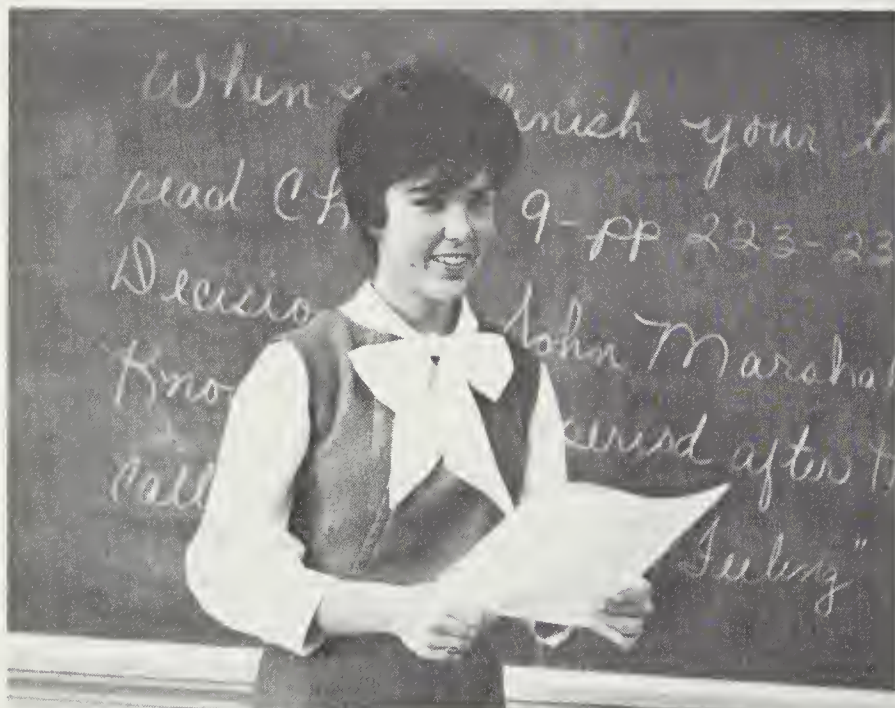 When finish your
read Ch 9 - pp 223-23
Decisio John Marshal
Kno period after
Call Feeling"